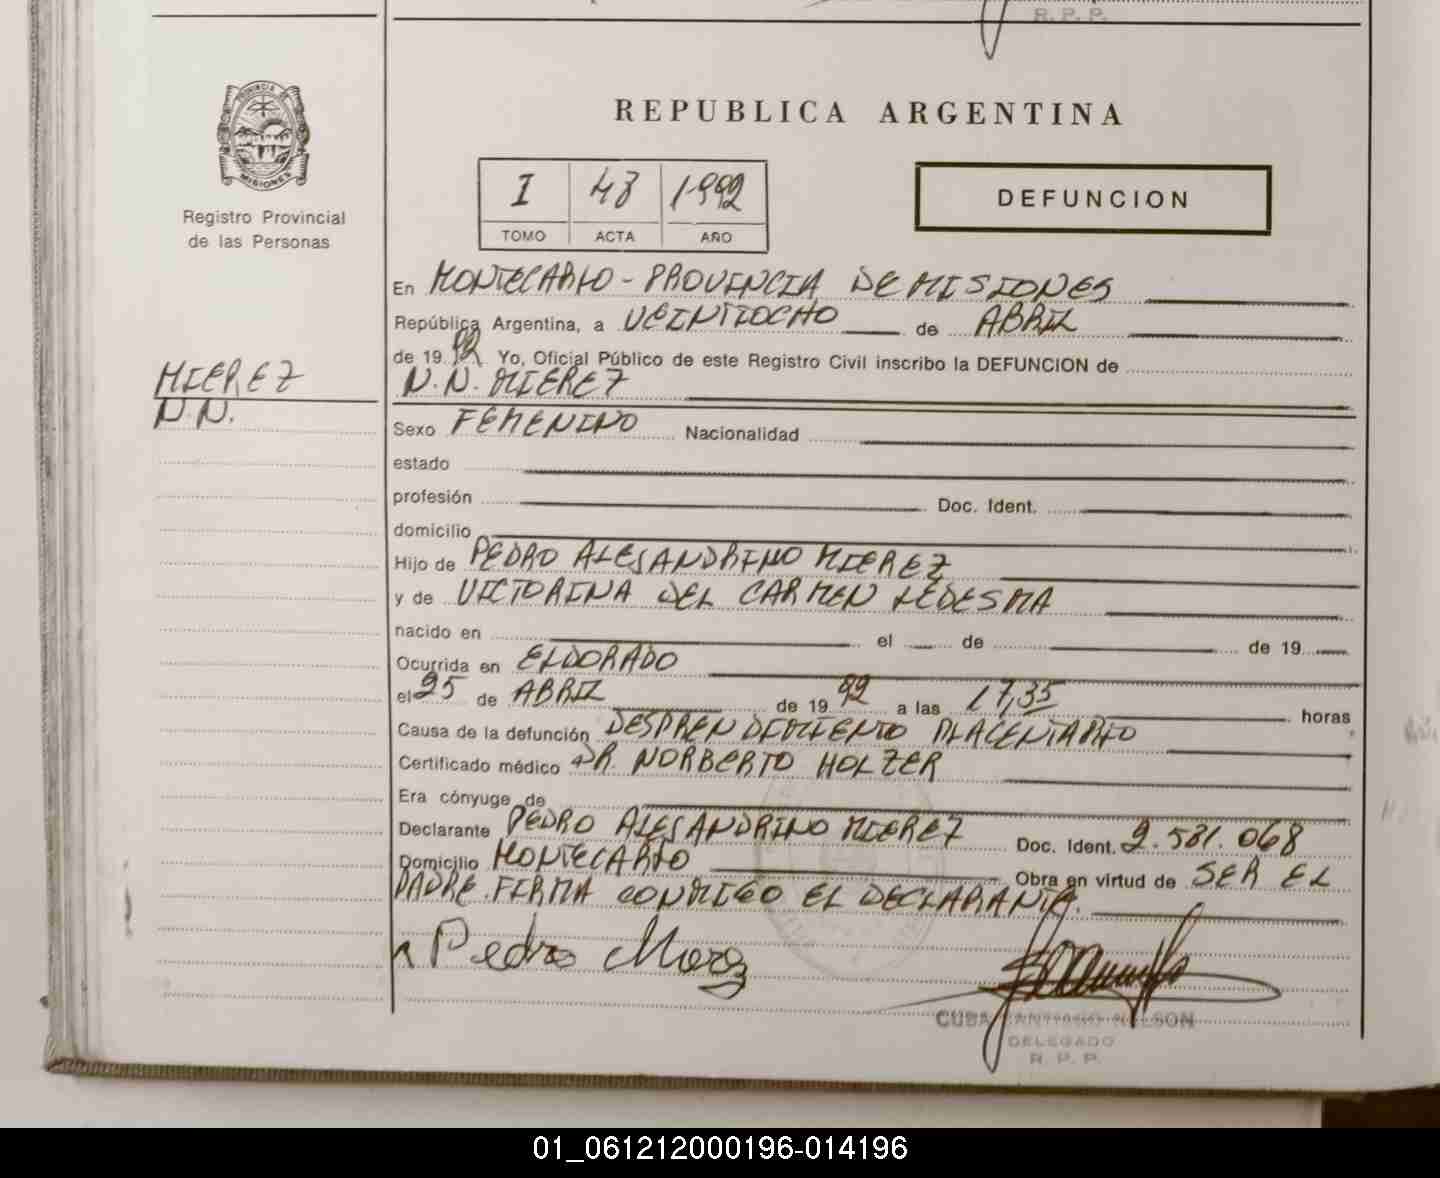 R. P. P.
PROVINCIA DE
MISIONES
Registro Provincial
de las Personas
REPUBLICA ARGENTINA
I 48 1992
TOMO ACTA AÑO
DEFUNCION
En MONTECARLO - PROVINCIA DE MISIONES
República Argentina, a VEINTIOCHO de ABRIL
de 19 92 Yo, Oficial Público de este Registro Civil inscribo la DEFUNCION de
MIEREZ
N.N.
N.N. MIEREZ
Sexo FEMENINO Nacionalidad
estado
profesión Doc. Ident.
domicilio
Hijo de PEDRO ALESANDRINO MIEREZ
y de VICTORINA DEL CARMEN LEDESMA
nacido en el de de 19
Ocurrida en ELDORADO
el 25 de ABRIL de 19 92 a las 17,35 horas
Causa de la defunción DESPRENDIMIENTO PLACENTARIO
Certificado médico DR. NORBERTO HOLZER
Era cónyuge de
Declarante PEDRO ALESANDRINO MIEREZ Doc. Ident. 2.531.068
Domicilio MONTECARLO Obra en virtud de SER EL
PADRE. FIRMA CONMIGO EL DECLARANTE.
Pedro
CUBA SANTIAGO NELSON
DELEGADO
R. P. P.
01_061212000196-014196